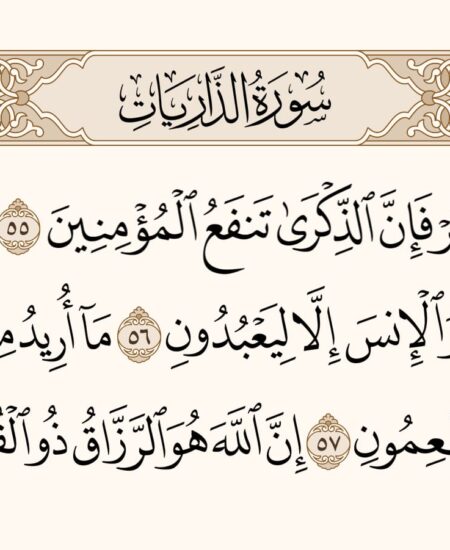 سُورَةُ الذَّارِيَاتِ
فَإِنَّ ٱلذِّكۡرَىٰ تَنفَعُ ٱلۡمُؤۡمِنِينَ ٥٥
ٱلۡإِنسَ إِلَّا لِيَعۡبُدُونِ ٥٦ مَآ أُرِيدُ
إِنَّ ٱللَّهَ هُوَ ٱلرَّزَّاقُ ذُو ٥٧